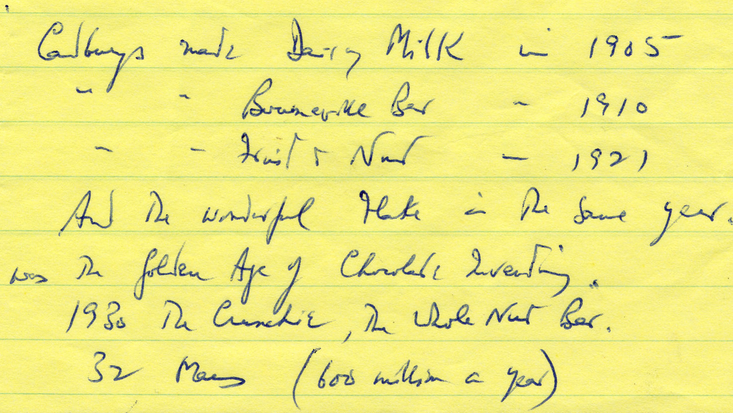 Cadburys made Dairy Milk in 1905
" " Bourneville Bar " 1910
" " Fruit & Nut — 1921
And the wonderful Flake in the same year.
was the Golden Age of Chocolate Inventing.
1930 The Crunchie, The Whole Nut Bar.
32 Mars (600 million a year)